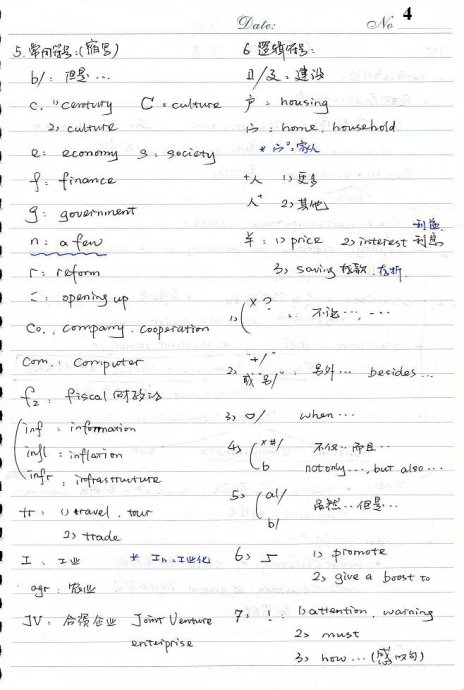 Date: No 4
5. 常用符号:(缩写)
b/: 但是…
c. 1) century C: culture
2) culture
e: economy s: society
f: finance
g: government
n: a few
r: reform
: opening up
Co.. company. cooperation
Com.: Computer
f2: fiscal 财政的
inf: information
infl: inflation
infr: infrastructure
tr: 1) travel. tour
2) trade
I: 工业 * In: 工业化
agr: 农业
JV: 合资企业 Joint Venture
enterprise
6 逻辑符号:
/ : 建设
户: housing
宀: home, household
* 宀°: 家人
+人 1) 更多
人+ 2) 其他
羊: 1) price 2) interest 利益 利息
3) saving 存款. 存折
1) ( x ? : 不论…, …
2) "+/" 或"另/" : 另外… besides…
3) 口/ when…
4) ( x #/ 不仅…而且…
b not only…, but also…
5) ( al/ 虽然…但是…
b/
6) 1) promote
2) give a boost to
7. !: 1) attention. warning
2) must
3) how… (感叹句)